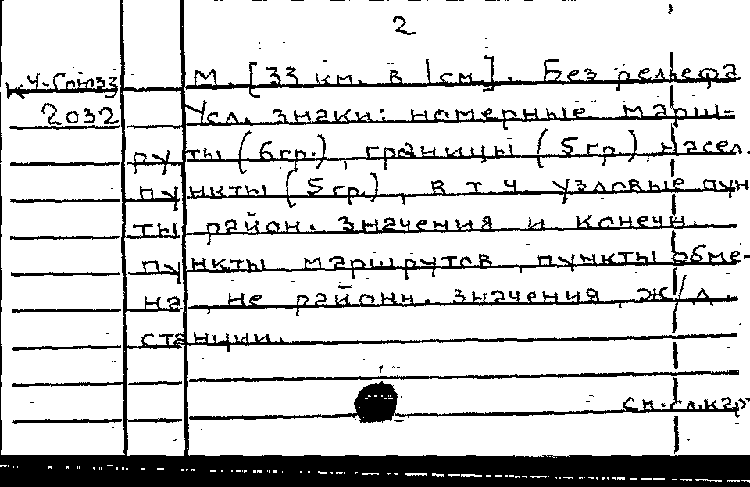 2
К Ч-Союзз М. [33 км. в 1 см]. Без рельефа
2032 Усл. знаки: номерные марш-
руты (6 гр.), границы (5 гр.), насел.
пункты (5 гр.), в т. ч. узловые пун
ты район. значения и конечн.
пункты маршрутов, пункты обме-
на, не районн. значения, ж/д.
станции.
см. сл. кар